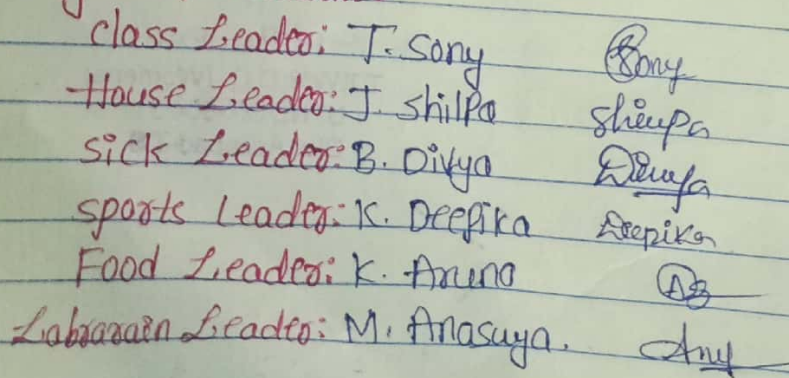 class Leader: T. Sony Sony
House Leader: J. Shilpa Shilpa
Sick Leader: B. Divya Divya
sports Leader: K. Deepika Deepika
Food Leader: K. Aruna
Labrarain Leader: M. Anasuya. Any